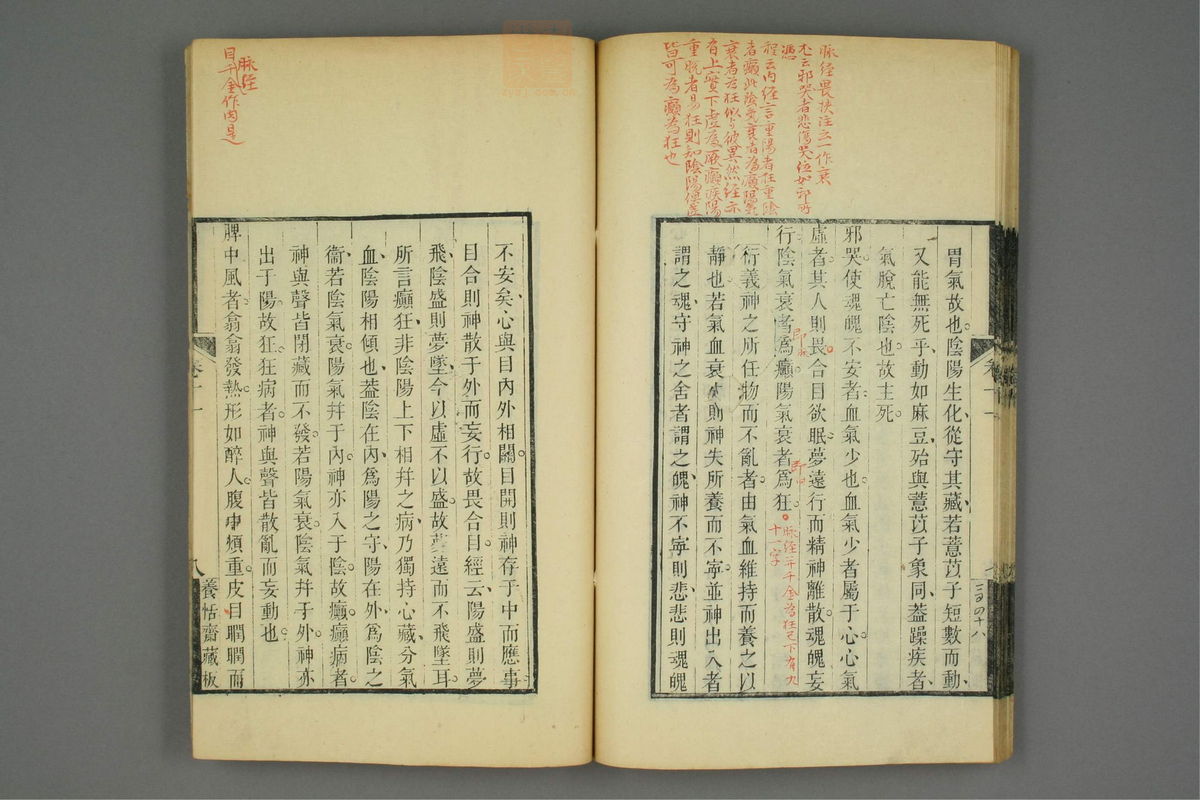 脉經畏扶注云一作衰
尤云邪哭者悲傷哭泣如邪所
憑
程云内經言重陽者狂重陰
者癲此陰氣衰者為癲陽氣
衰者為狂似与彼異然經亦
有上實下虛為厥癲疾陽
重脫者易狂則知陰陽俱虛
皆可為癲為狂也
胃氣故也陰陽生化從守其藏若薏苡子短數而動
又能無死乎動如麻豆殆與薏苡子象同葢躁疾者
氣脫亡陰也故主死
邪哭使魂魄不安者血氣少也血氣少者屬于心心氣
虛者其人則畏合目欲眠夢遠行而精神離散魂魄妄
行陰氣衰者爲癲陽氣衰者爲狂
脉經并千金為狂已下有九
十一字
衍義神之所任物而不亂者由氣血維持而養之以
靜也若氣血衰少則神失所養而不寧並神出入者
謂之魂守神之舍者謂之魄神不寧則悲悲則魂魄
三百四十八
脉經
目千金作肉是
不安矣心與目內外相關目開則神存于中而應事
目合則神散于外而妄行故畏合目經云陽盛則夢
飛陰盛則夢墜今以虛不以盛故夢遠而不飛墜耳
所言癲狂非陰陽上下相幷之病乃獨持心藏分氣
血陰陽相傾也葢陰在內爲陽之守陽在外爲陰之
衞若陰氣衰陽氣幷于內神亦入于陰故癲癲病者
神與聲皆閉藏而不發若陽氣衰陰氣幷于外神亦
出于陽故狂狂病者神與聲皆散亂而妄動也
脾中風者翕翕發熱形如醉人腹中煩重皮目瞤瞤而
卷十一
八
養恬齋藏板